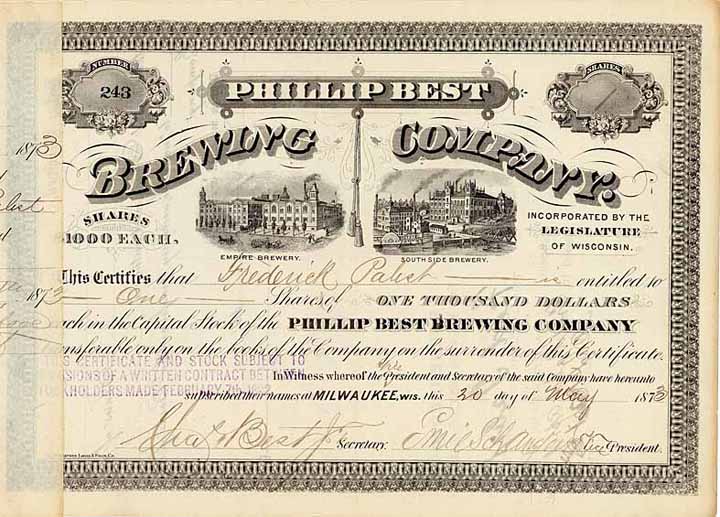 NUMBER
243
SHARES
1
PHILLIP BEST
BREWING COMPANY.
SHARES
1000 EACH,
EMPIRE BREWERY.
SOUTH SIDE BREWERY.
INCORPORATED BY THE
LEGISLATURE
OF WISCONSIN.
1873
1873
This Certifies that Frederick Pabst is entitled to
One Shares of ONE THOUSAND DOLLARS
each in the Capital Stock of the PHILLIP BEST BREWING COMPANY
nsferable only on the books of the Company on the surrender of this Certificate.
IS CERTIFICATE AND STOCK SUBJECT TO
SIONS OF A WRITTEN CONTRACT BETWEEN
KHOLDERS MADE FEBRUARY
In Witness whereof the Vice President and Secretary of the said Company have hereunto
subscribed their names at MILWAUKEE, WIS. this 20 day of May 1873
Chas Best Jr. Secretary. Emil Schandein Vice President.